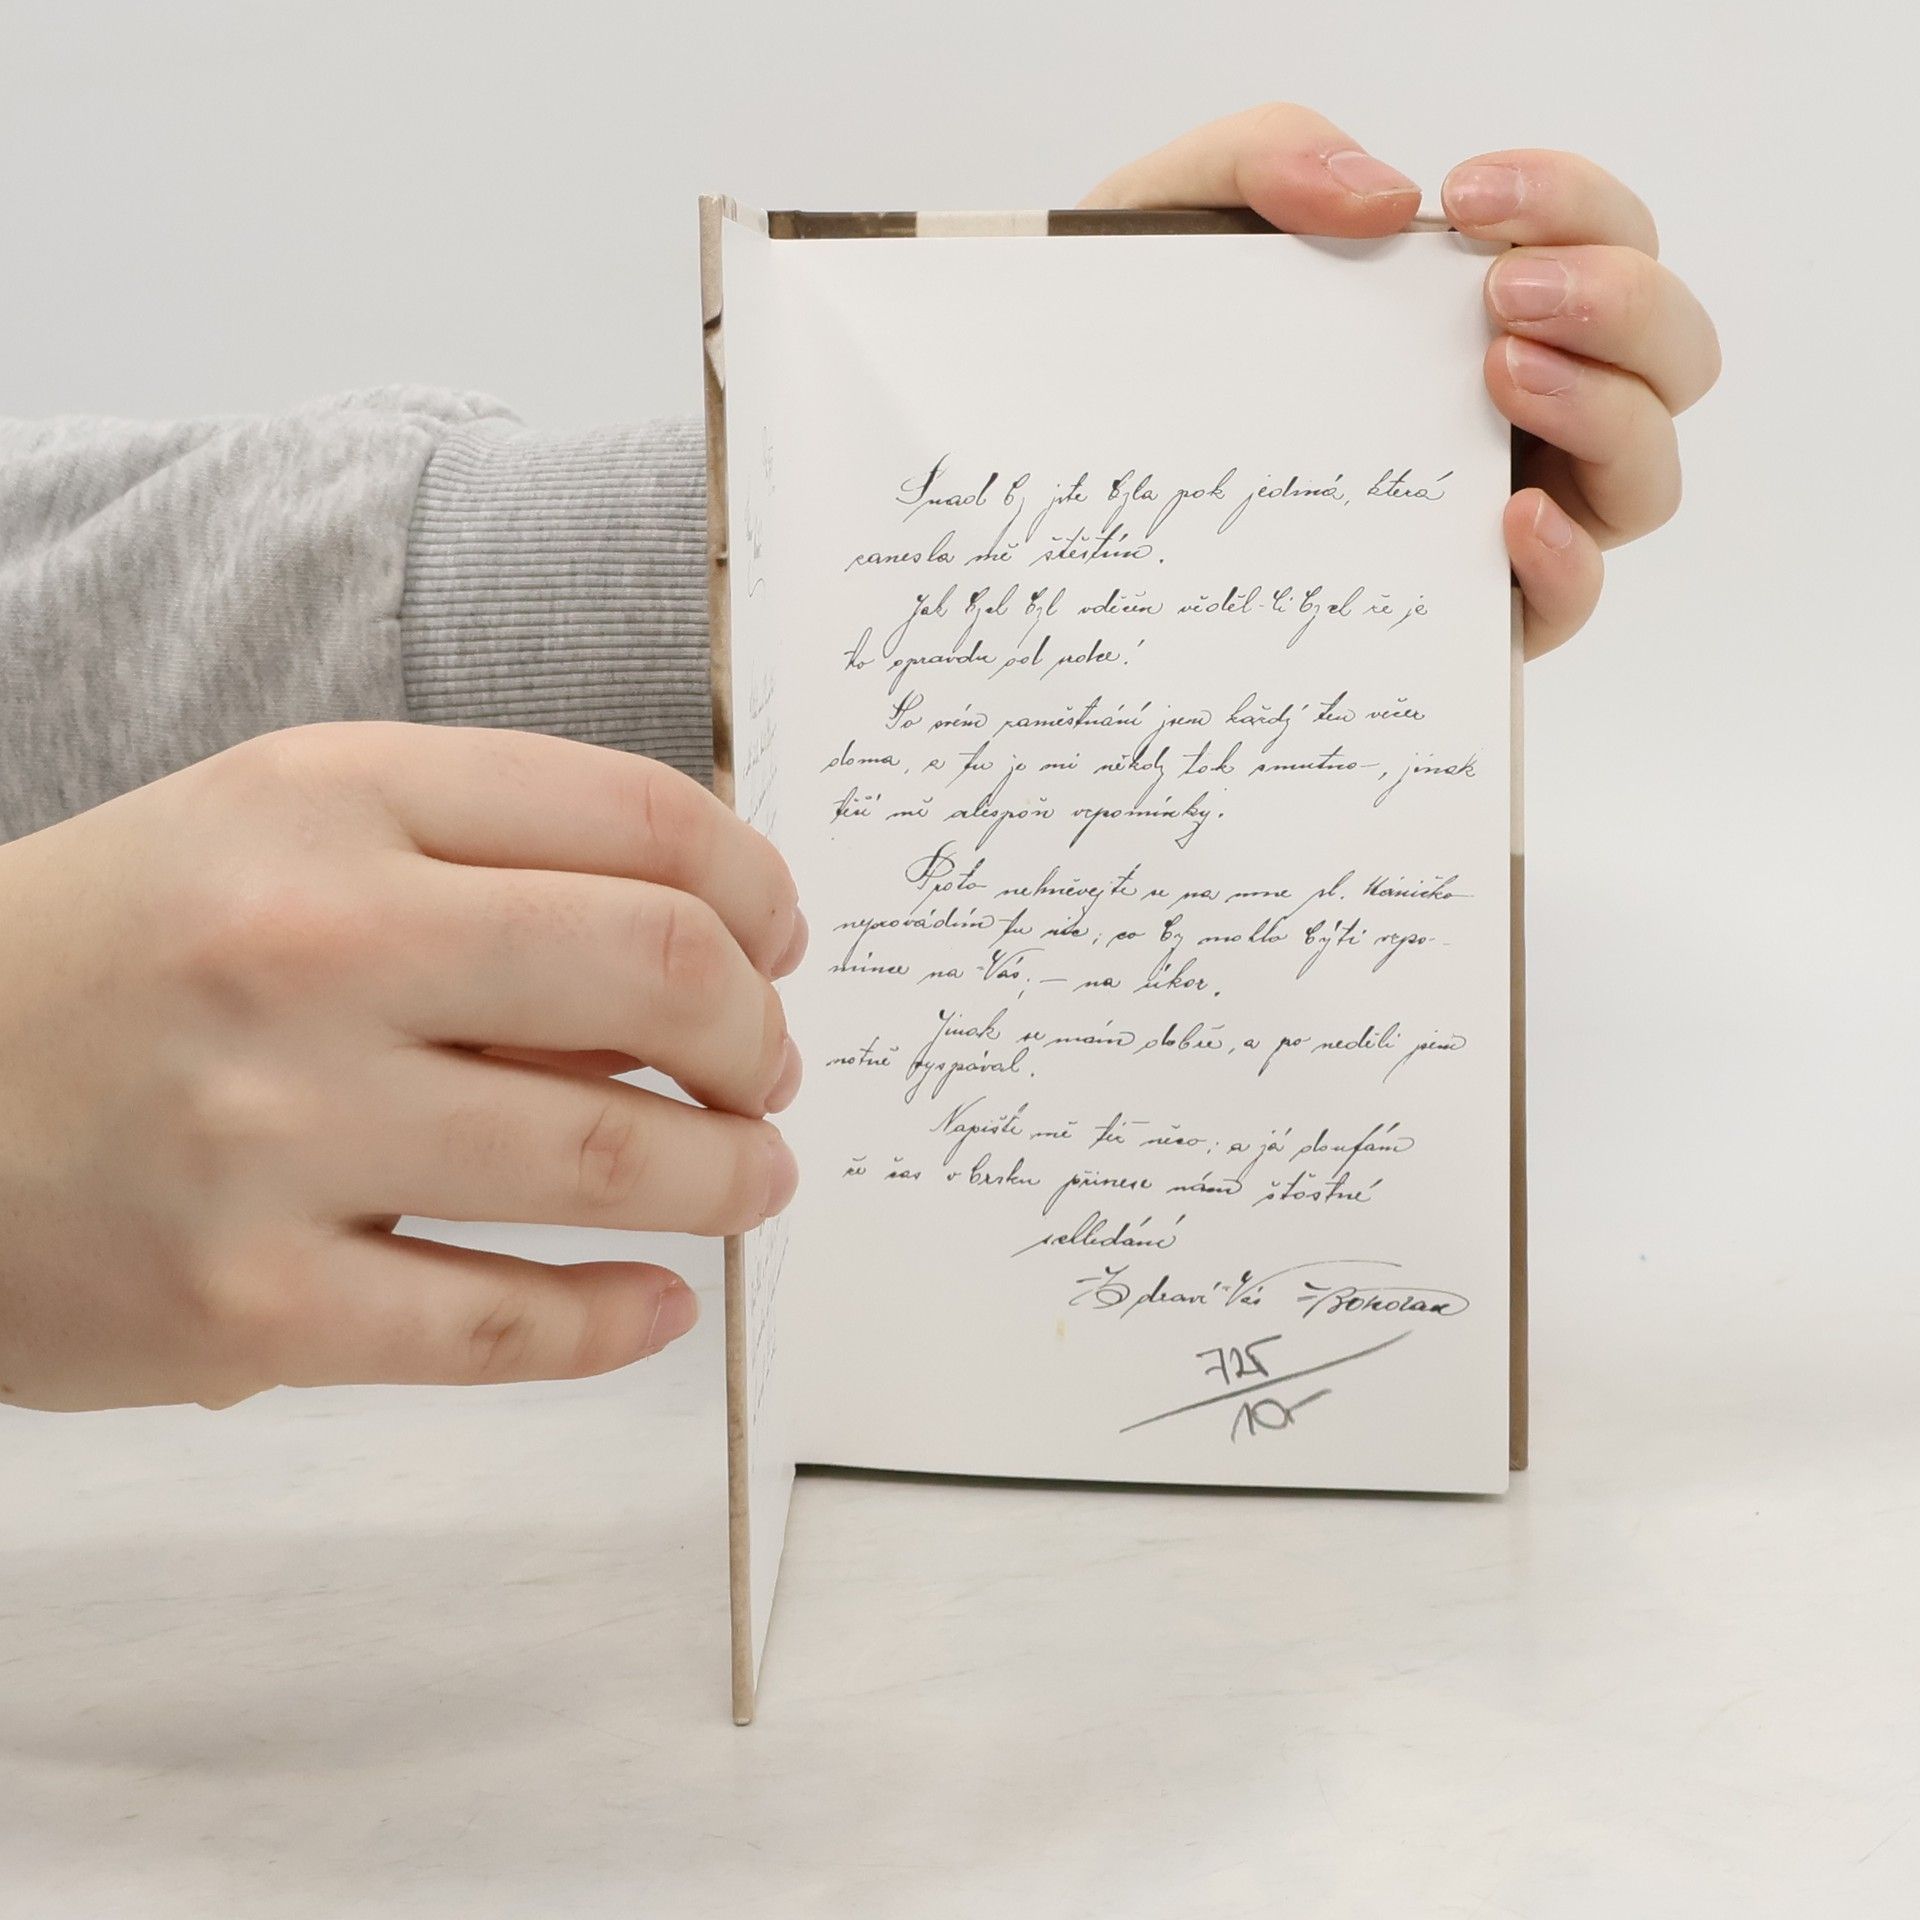 Snad by jste byla pak jediná, která
zanesla mě štěstím.
Jak byl vděčen věděl-li bych že je
to opravdu od srdce!
Po svém zaměstnání jsem každý ten večer
doma, a tu je mi někdy tak smutno-, jinak
těší mě alespoň vzpomínky.
Proto nehněvejte se na mne sl. Háničko
neprovádím tu nic; co by mohlo býti vzpo-
mínce na Vás; – na úkor.
Jinak se mám dobře, a po neděli jsem
notně vyspával.
Napište mě též něco; a já doufám
že čas v brzku přinese nám šťastné
shledání
Zdraví Vás
725
10-